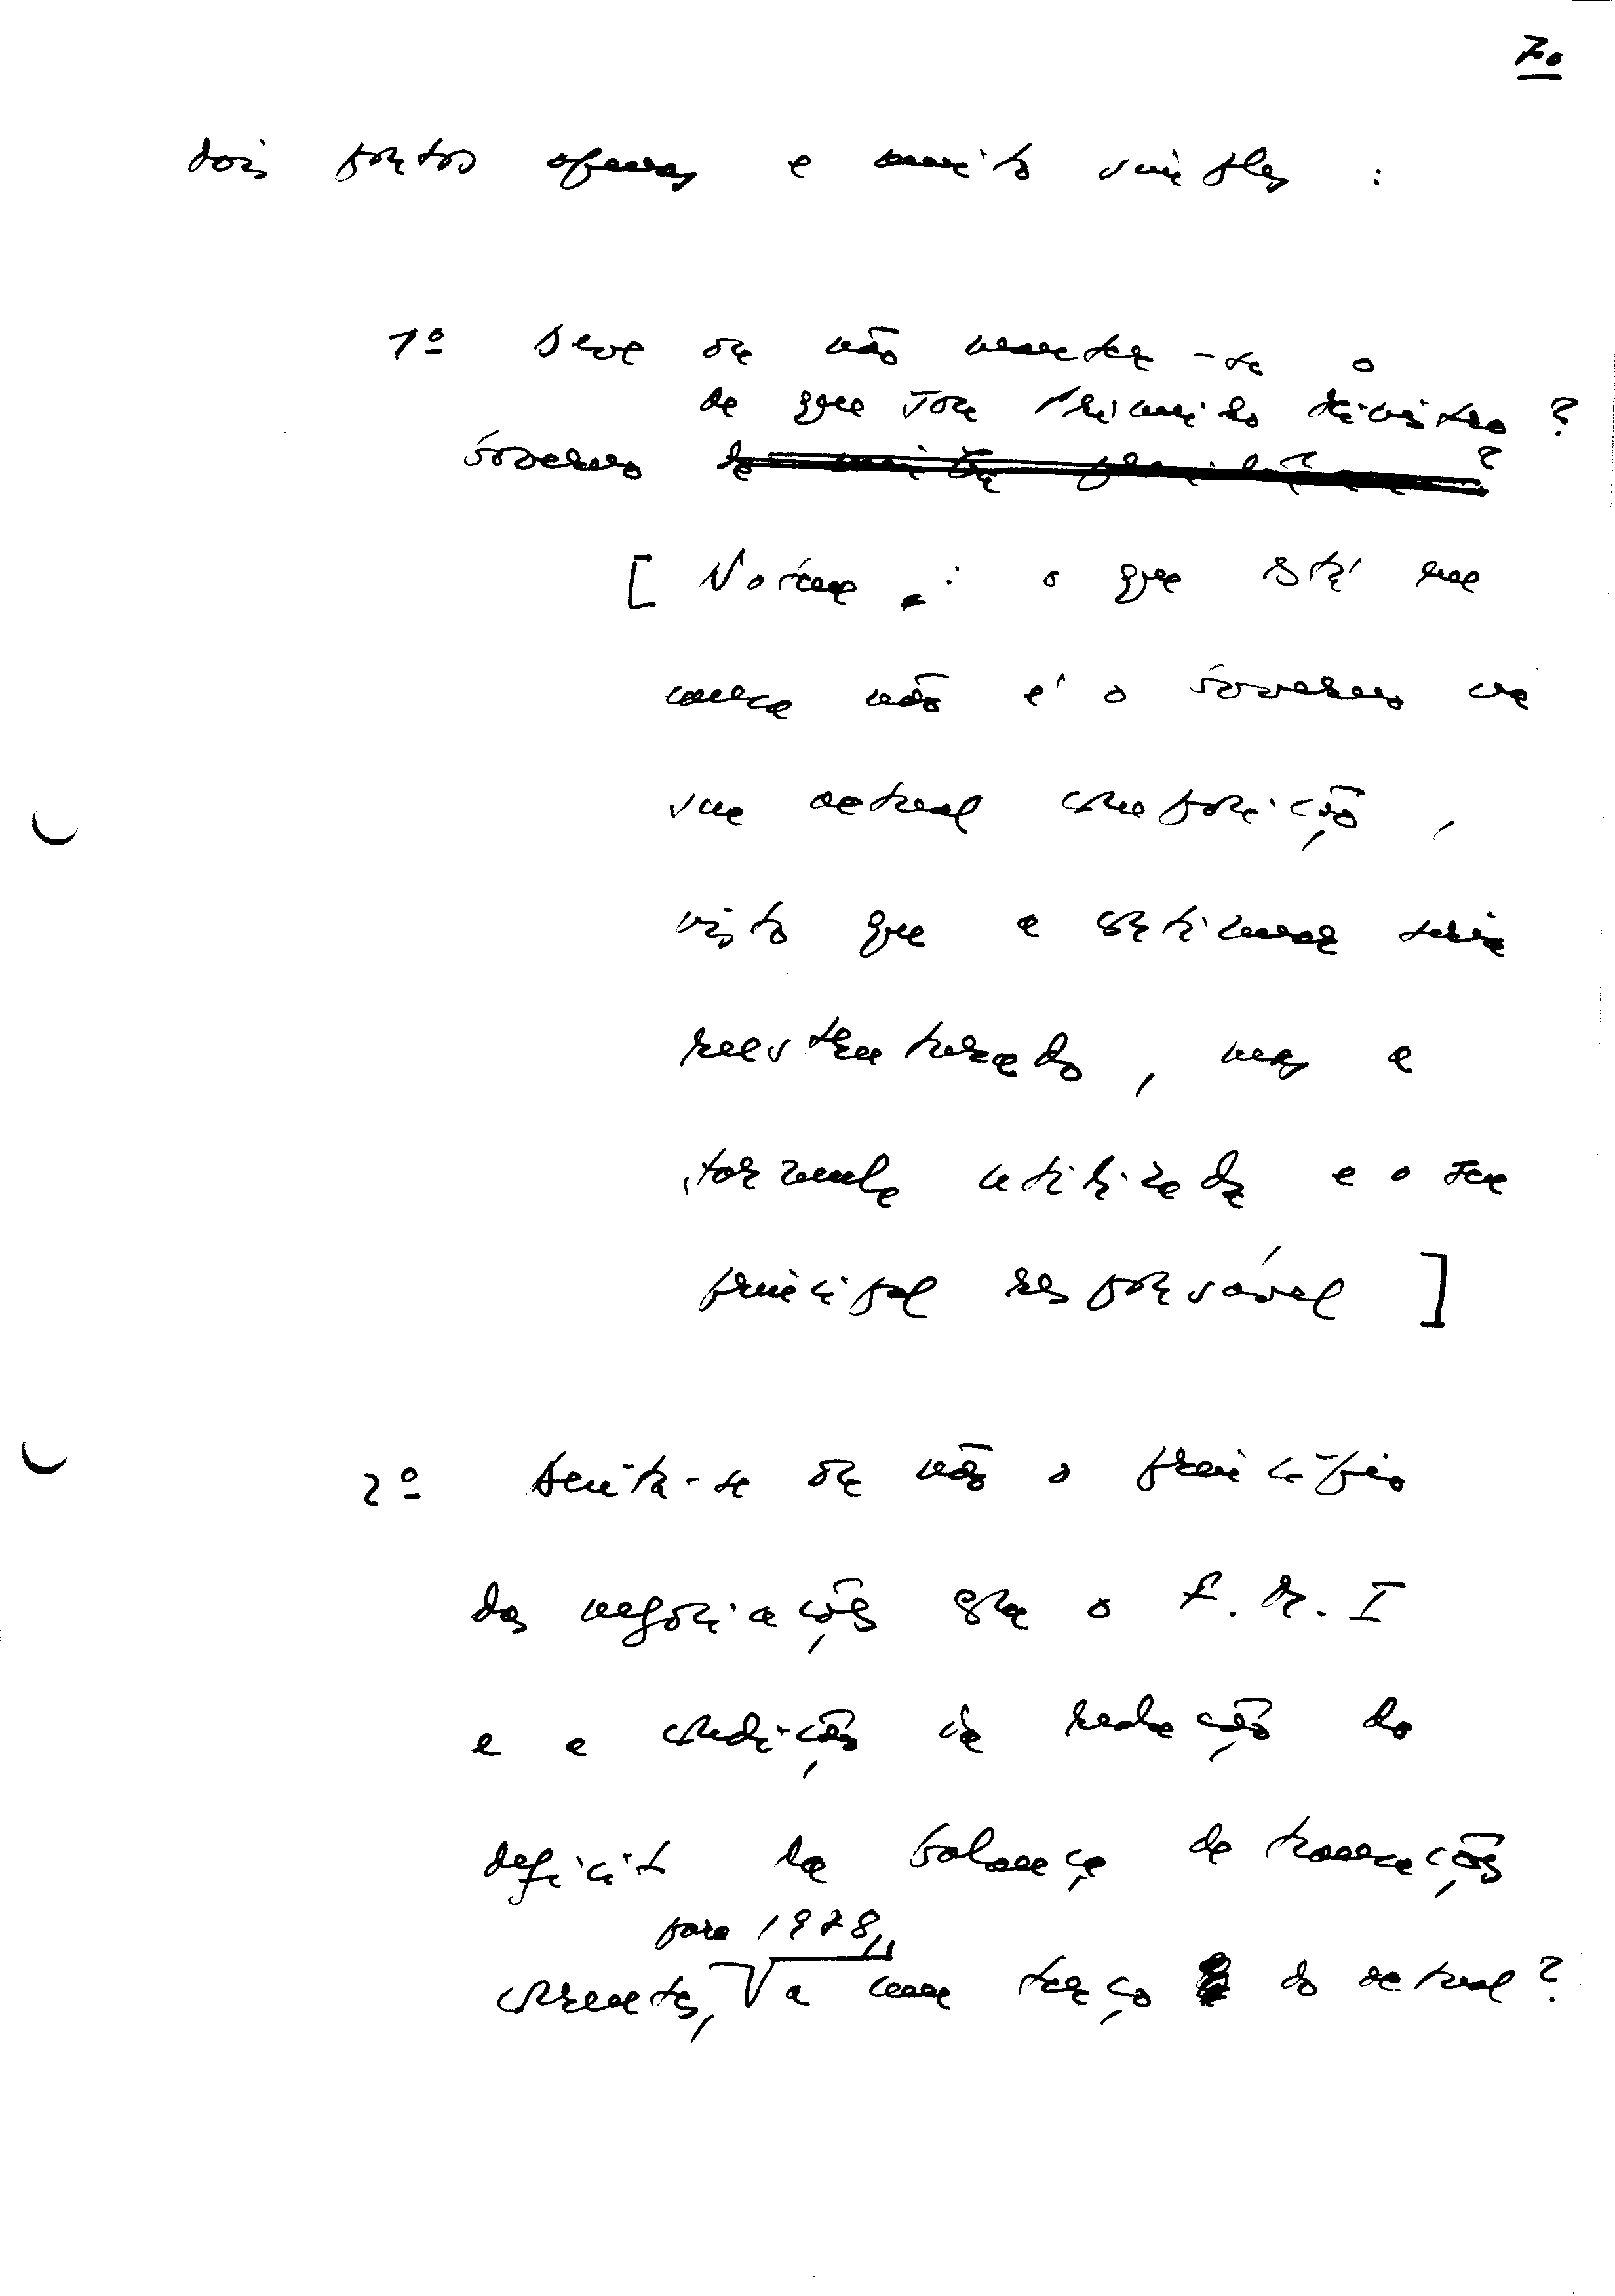 70
dois pontos apenas e muito simples :
1º Deve ou não manter-se o
de que sou Primeiro Ministro ?
Governo do
[ Norma : o que está em
causa não é o Governo na
sua actual composição,
visto que a
reestruturado, mas a
fórmula utilizada e o seu
principal responsável ]
2º Aceita-se ou não o princípio
das negociações com o F. M. I
e a condição da redução do
deficit da balança de transacções
para 1978,
correntes, a um terço do actual ?